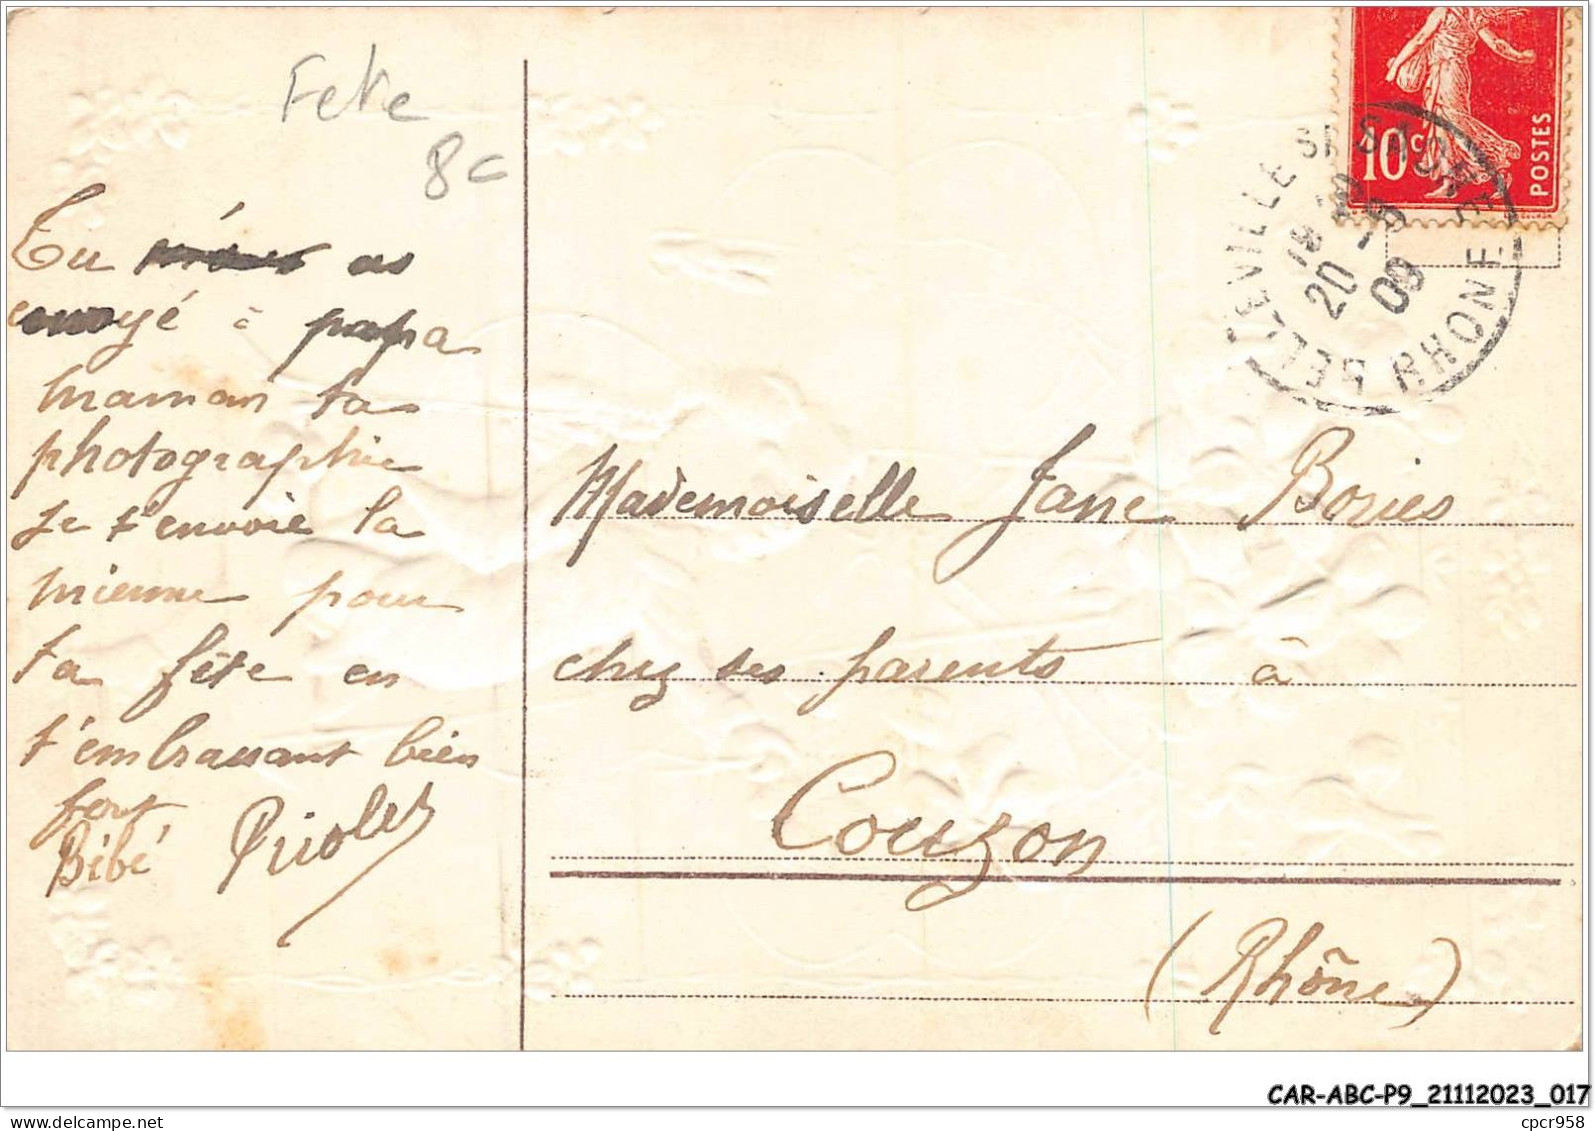 Fete
8c
Tu as
envoyé à papa
maman ta
photographie
Je t'envoie la
mienne pour
ta fête en
t'embrassant bien
fort
Bébé Priolet
10c
POSTES
BELLEVILLE S/ SAONE
RHONE
20 -8
09
Mademoiselle Jane Bories
chez ses parents à
Couzon
(Rhône)
CAR-ABC-P9_21112023_017
delcampe.net
cpcr958